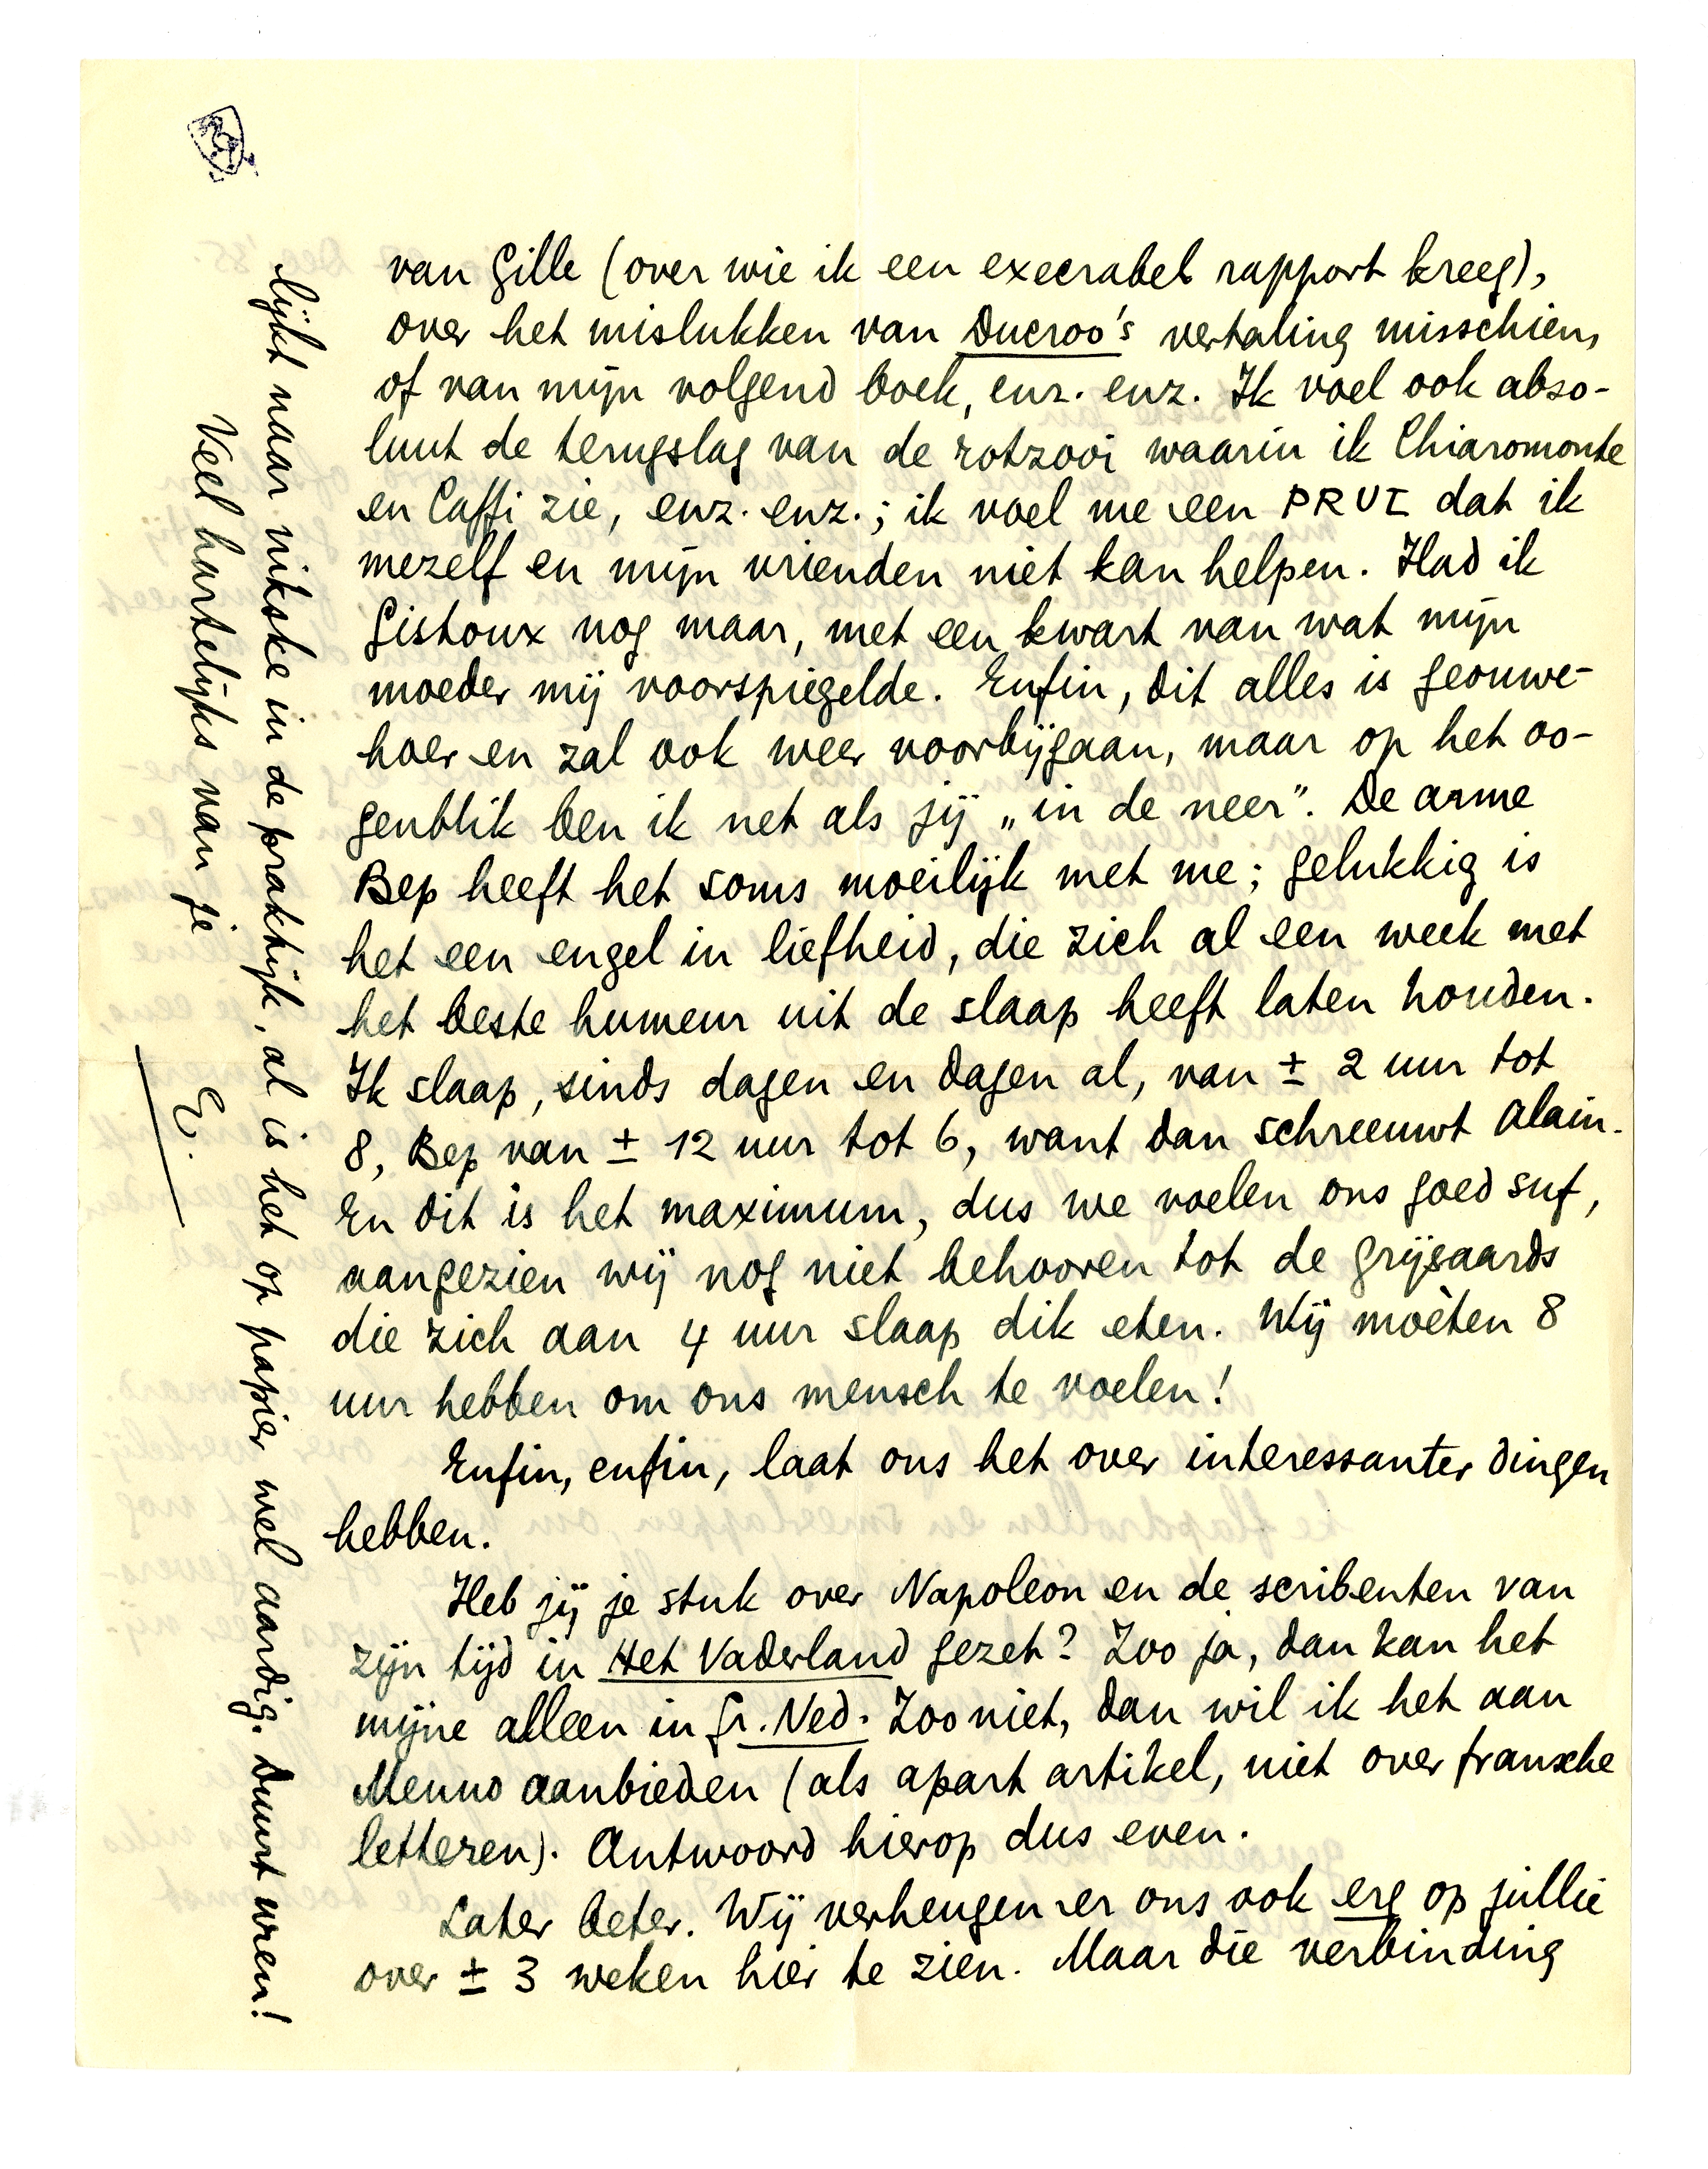 van Gille (over wie ik een execrabel rapport kreeg),
over het mislukken van Ducroo's vertaling misschien,
of van mijn volgend boek, enz. enz. Ik voel ook abso-
luut de terugslag van de rotzooi waarin ik Chiaromonte
en Caffi zie, enz. enz.; ik voel me een PRUL dat ik
mezelf en mijn vrienden niet kan helpen. Had ik
Gistoux nog maar, met een kwart van wat mijn
moeder mij voorspiegelde. Enfin, dit alles is geouwe-
hoer en zal ook weer voorbijgaan, maar op het oo-
genblik ben ik net als jij „in de neer”. De arme
Bep heeft het soms moeilijk met me; gelukkig is
het een engel in liefheid, die zich al een week met
het beste humeur uit de slaap heeft laten houden.
Ik slaap, sinds dagen en dagen al, van ± 2 uur tot
8, Bep van ± 12 uur tot 6, want dan schreeuwt Alain.
En dit is het maximum, dus we voelen ons goed suf,
aangezien wij nog niet behooren tot de grijsaards
die zich aan 4 uur slaap dik eten. Wij moèten 8
uur hebben om ons mensch te voelen!
Enfin, enfin, laat ons het over interessanter dingen
hebben.
Heb jij je stuk over Napoleon en de scribenten van
zijn tijd in Het Vaderland gezet? Zoo ja, dan kan het
mijne alleen in Gr. Ned. Zoo niet, dan wil ik het aan
Menno aanbieden (als apart artikel, niet over fransche
letteren). Antwoord hierop dus even.
Later beter. Wij verheugen er ons ook erg op jullie
over ± 3 weken hier te zien. Maar die verbinding
lijkt naar nikske in de praktijk, al is het op papier wel aardig. Duurt uren!
Veel hartelijks van je
E.